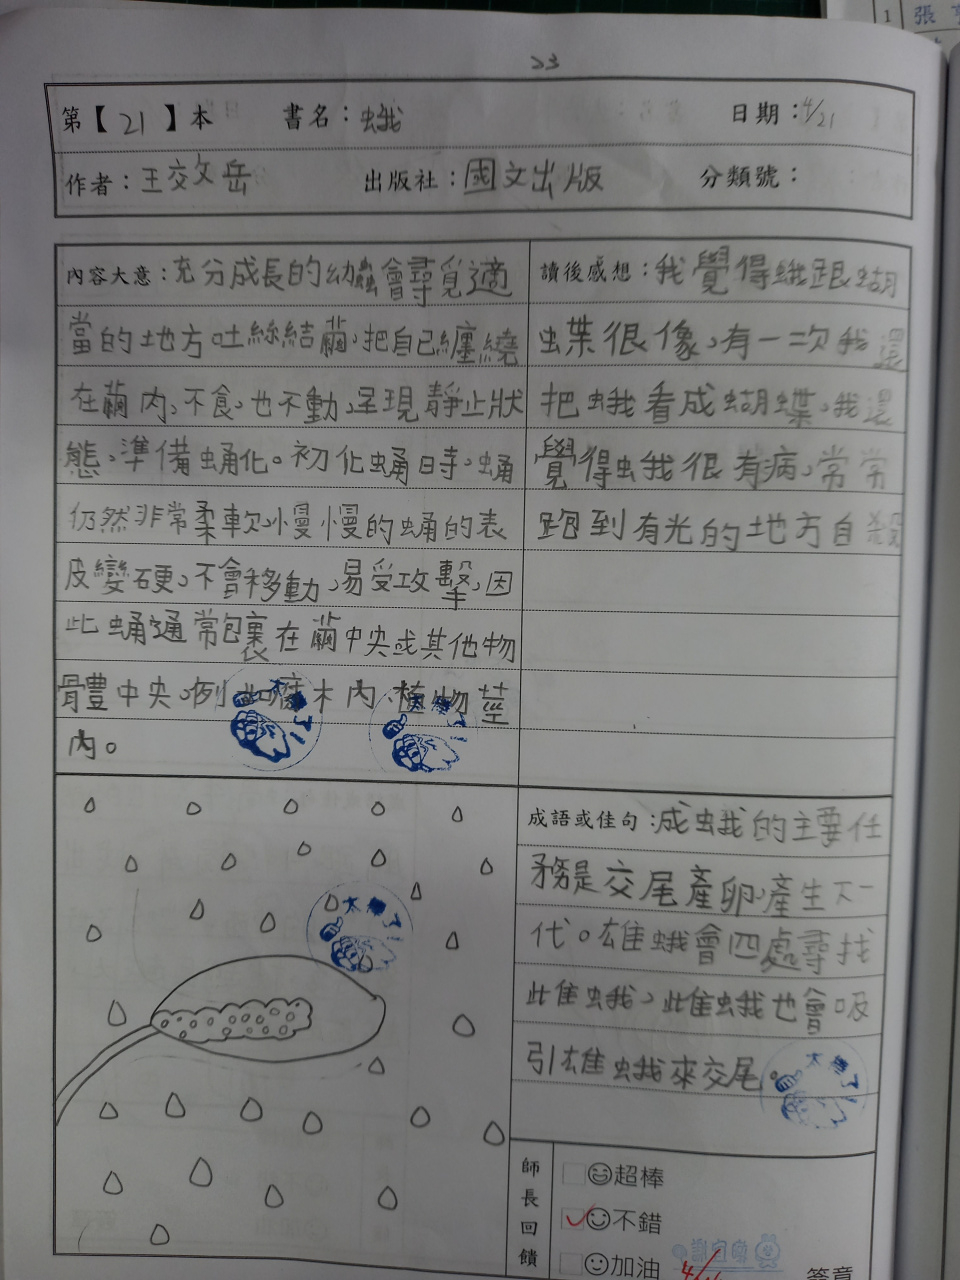 23
1 張
第【 21 】本 書名：蛾 日期：4/21
作者：王效岳 出版社：國文出版 分類號：
內容大意：充分成長的幼蟲會尋覓適
當的地方吐絲結繭，把自己纏繞
在繭內，不食，也不動，呈現靜止狀
態，準備蛹化。初化蛹時，蛹
仍然非常柔軟，慢慢的蛹的表
皮變硬，不會移動，易受攻擊，因
此蛹通常包裹在繭中央或其他物
體中央。例如腐木內、植物莖
內。
讀後感想：我覺得蛾跟蝴
蝶很像，有一次我還
把蛾看成蝴蝶，我還
覺得蛾很有病，常常
跑到有光的地方自殺
太棒了
太棒了
太棒了
成語或佳句：成蛾的主要任
務是交尾產卵，產生下一
代。雄蛾會四處尋找
雌蛾，雌蛾也會吸
引雄蛾來交尾。
太棒了
師長回饋
超棒
不錯
加油
簽章